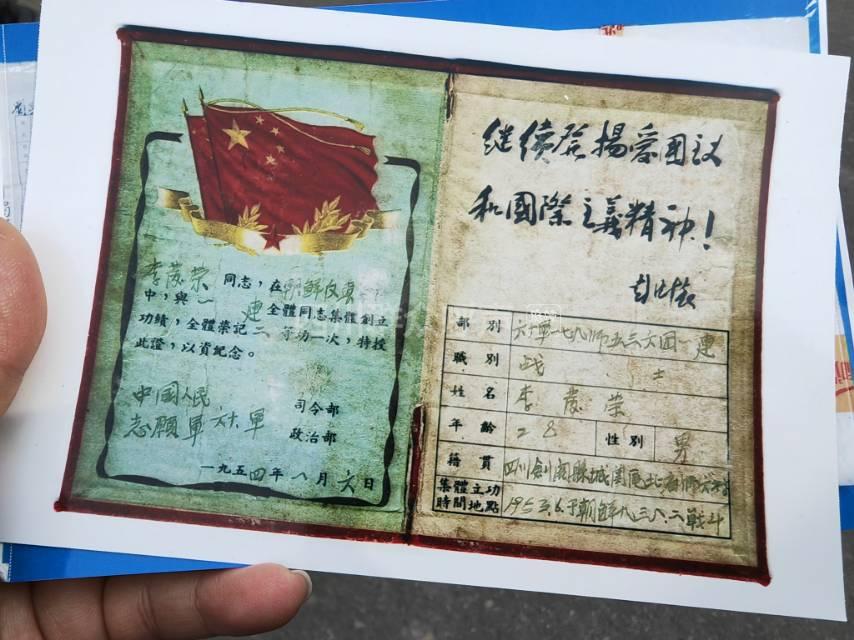 李茂荣 同志，在 朝鲜
中，與 一 連 全體同志集體創立
功績，全體榮記 二 等功一次，特授
此證，以資紀念。
中国人民 司令部
志願軍六十軍 政治部
一九五四年八月六日
继续发揚爱国主义
和國際主義精神！
部別 六十軍一七九师五三六团一連
職別 战士
姓名 李茂荣
年齡 28 性别 男
籍貫 四川劍閣縣城関區北
集體立功 時間地點 1953.6.于朝鮮九三八.二戰斗